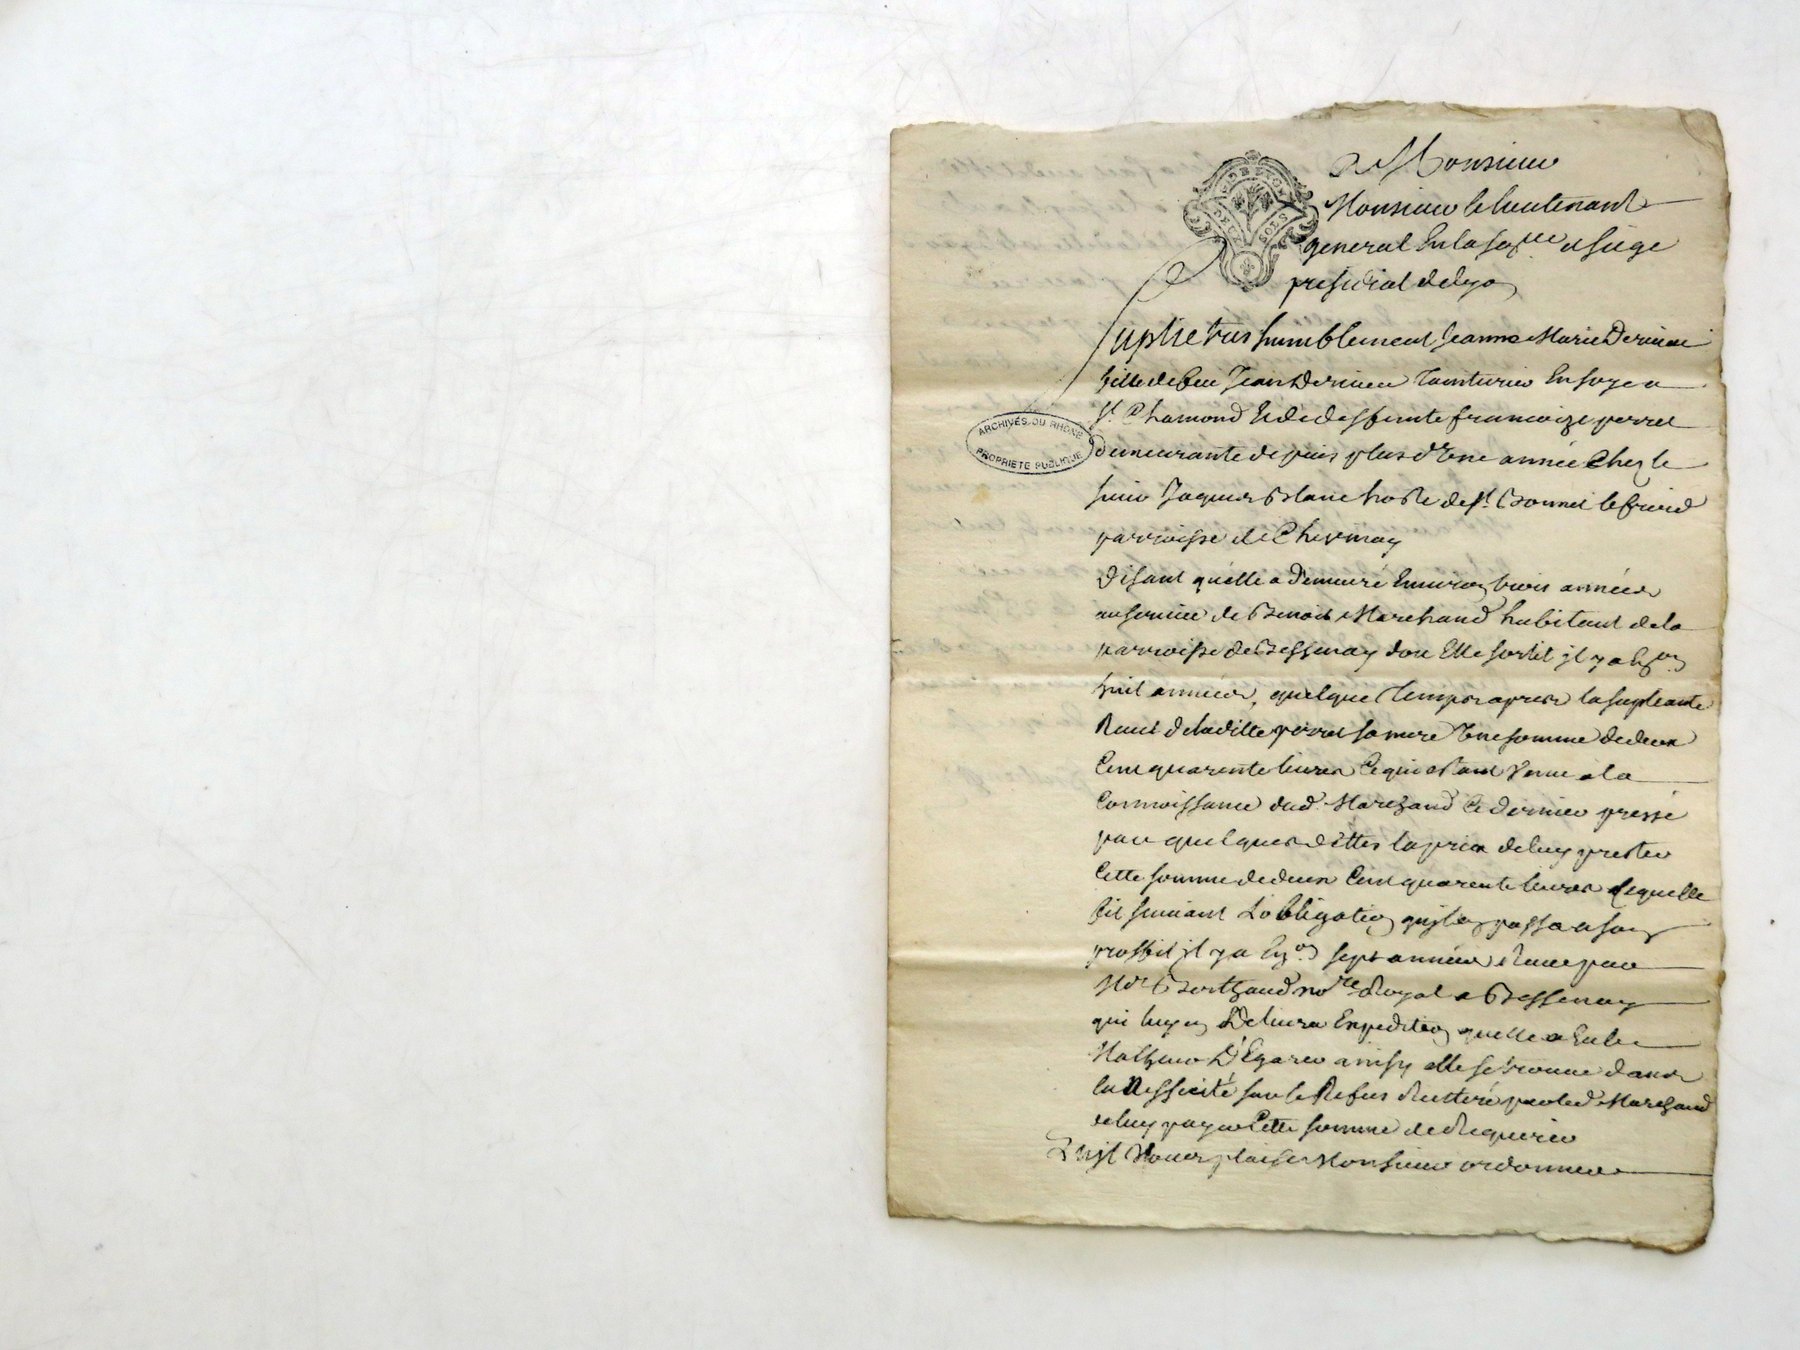 A Monsieur
Monsieur le lieutenant
general En la sen.lle et siege
presidial de lyon
Suplie tres humblement Jeanne Marie Derieu
fille de feu Jean Derieu Tainturier En soye a
St. Chamond Et de deffunte francoize perret
demeurante depuis plus d'Une année Chez le
sieur Jaques Blanc hoste de St. Bonnet le froid
parroisse de Chevinay
Disant qu'elle a Demeuré Environ trois années
au service de Benoit Marchand habitant de la
parroisse de Bessenay dou Elle sortit il y a En.on
huit années, quelque Temps apres la supleante
Reçut de laditte perret sa mere Une somme de deux
Cent quarente livres Ce qui estant Venu a la
Connoissance dud. Marchand Ce dernier pressé
par quelques dettes la pria de luy prester
Cette somme de deux Cent quarente livres lequelle
fit suivant L'obligation qu'il en passa a son
proffit il y a En.on sept années Receu par
Me Berthaud no.re Royal a Bessenay
qui luy en Delivra Expedition quelle a Eu le
Malheur D'Egarer ainsy elle se trouve dans
la Nessecité sur le Refus Reitteré par led. Marchand
de luy payer Cette somme de Requerir
Quil Vous plaise Monsieur ordonner
ARCHIVES DU RHÔNE
PROPRIÉTÉ PUBLIQUE